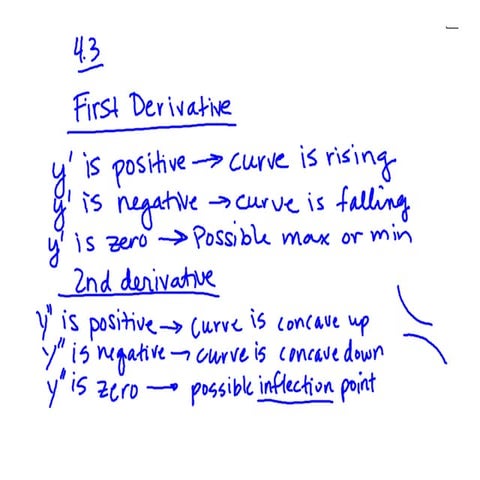 4.3
First Derivative
y' is positive → curve is rising
y' is negative → curve is falling
y' is zero → Possible max or min
2nd derivative
y" is positive → curve is concave up
y" is negative → curve is concave down
y" is zero → possible inflection point